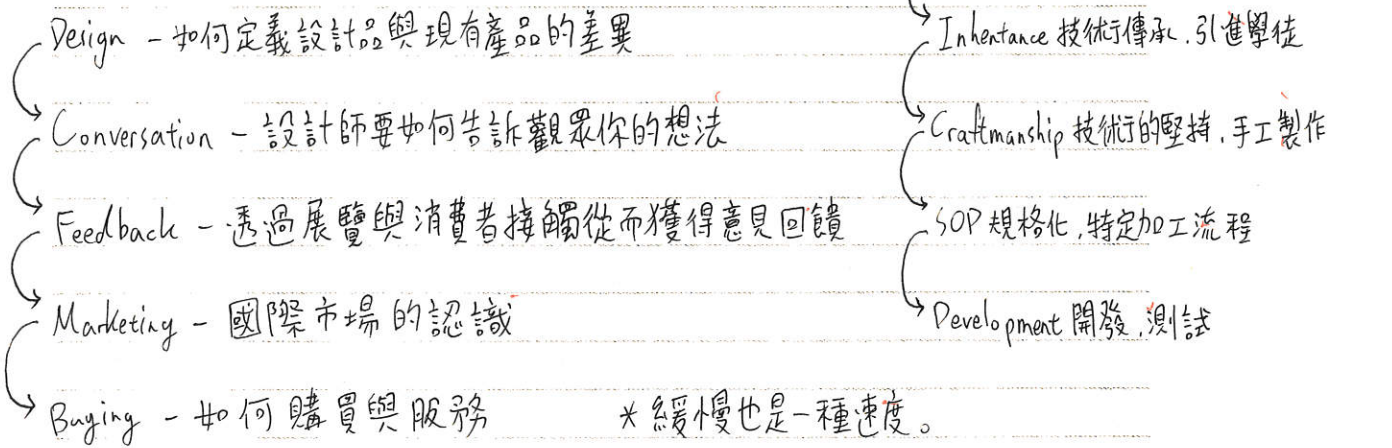 Design - 如何定義設計品與現有產品的差異
Conversation - 設計師要如何告訴觀眾你的想法
Feedback - 透過展覽與消費者接觸從而獲得意見回饋
Marketing - 國際市場的認識
Buying - 如何購買與服務
*緩慢也是一種速度。
Inheritance 技術傳承,引進學徒
Craftmanship 技術的堅持,手工製作
SOP 規格化,特定加工流程
Development 開發,測試